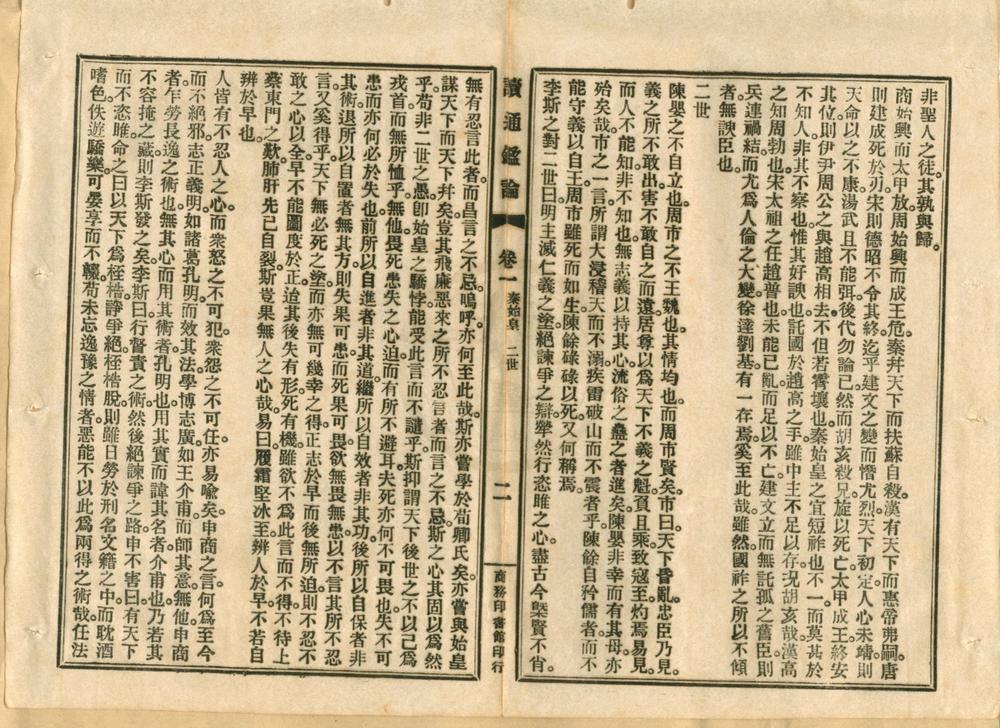 非聖人之徒。其孰與歸。
商始興而太甲放。周始興而成王危。秦幷天下而扶蘇自殺。漢有天下而惠帝弗嗣。唐
則建成死於刃。宋則德昭不令其終。迄乎建文之變而憯尤烈。天下初定。人心未靖。則
天命以之不康。湯武且不能弭。後代勿論已。然而胡亥殺兄。旋以死亡。太甲成王。終安
其位。則伊尹周公之與趙高。相去不但若霄壤也。秦始皇之宜短祚也不一。而莫甚於
不知人。非其不察也。惟其好諛也。託國於趙高之手。雖中主不足以存。况胡亥哉。漢高
之知周勃也。宋太祖之任趙普也。未能已亂而足以不亡。建文立而無託孤之舊臣。則
兵連禍結。而尤爲人倫之大變。徐達劉基有一存焉。奚至此哉。雖然。國祚之所以不傾
者。無諛臣也。
二世
陳嬰之不自立也。周市之不王魏也。其情均也。而周市賢矣。市曰。天下昏亂。忠臣乃見。
義之所不敢出。害不敢自之而遠。居尊以爲天下不義之魁。負且乘。致寇至。灼焉易見。
而人不能知。非不知也。無志義以持其心。流俗之蠱之者進矣。陳嬰非幸而有其母。亦
殆矣哉。市之一言。所謂大浸稽天而不溺。疾雷破山而不震者乎。陳餘自矜儒者。而不
能守義以自王。周市雖死而如生。陳餘碌碌以死。又何稱焉。
李斯之對二世曰。明主滅仁義之塗。絕諫爭之辯。犖然行恣睢之心。盡古今槩賢不肖。
讀通鑑論 卷一 秦始皇 二世 二 商務印書館印行
無有忍言此者。而昌言之不忌。嗚呼。亦何至此哉。斯亦嘗學於荀卿氏矣。亦嘗與始皇
謀天下而天下幷矣。豈其飛廉惡來之所不忍言者而言之不忌。斯之心其固以爲然
乎。苟非二世之愚。卽始皇之驕悖。能受此言而不譴乎。斯抑謂天下後世之不以己爲
戎首而無所恤乎。無他。畏死患失之心迫而有所不避耳。夫死亦何不可畏也。失不可
患。而亦何必於失也。前所以自進者非其道。繼所以自效者非其功。後所以自保者非
其術。退所以自置者無其方。則失果可患而死果可畏。欲無畏無患。以不言其所不忍
言。又奚得乎。天下無必死之塗。而亦無可幾幸之得。正志於早而後無所迫。則不忍不
敢之心以全。早不能圖度於正。迨其後失有形。死有機。雖欲不爲此言而不得。不待上
蔡東門之歎。肺肝先已自裂。斯豈果無人之心哉。易曰。履霜堅冰至。辨人於早。不若自
辨於早也。
人皆有不忍人之心。而衆怒之不可犯。衆怨之不可任。亦易喩矣。申商之言。何爲至今
而不絕邪。志正義明如諸葛孔明而效其法。學博志廣如王介甫而師其意。無他。申商
者。乍勞長逸之術也。無其心而用其術者。孔明也。用其實而諱其名者。介甫也。乃若其
不容掩之藏。則李斯發之矣。李斯曰。行督責之術。然後絕諫爭之路。申不害曰。有天下
而不恣睢。命之曰以天下爲桎梏。諫爭絕。桎梏脫。則雖日勞於刑名文籍之中。而耽酒
嗜色。佚遊驕樂。可晏享而不輟。苟未忘逸豫之情者。惡能不以此爲兩得之術哉。任法